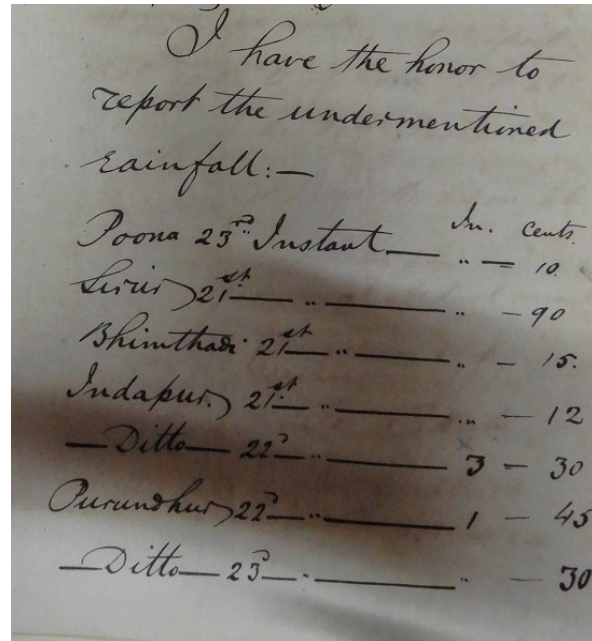 I have the honor to
report the undermentioned
rainfall:—
In. Cents.
Poona 23rd Instant — " — 10.
Sirur 21st — " — " — 90
Bhimthadi 21st — " — " — 15.
Indapur 21st — " — " — 12
— Ditto — 22d — " — 3 — 30
Purundhur 22d — " — 1 — 45
— Ditto — 23d — " — " — 30